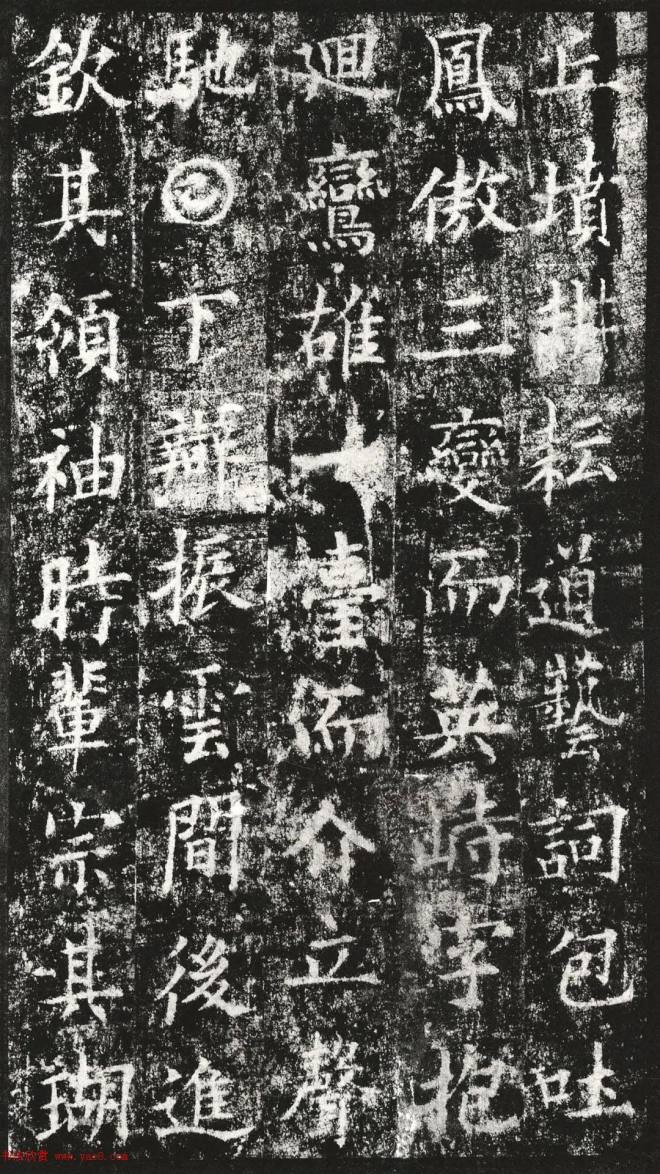 丘墳耕耘道藝詞包吐
鳳傲三變而英峙字抱
迴鸞雄臺而介立聲
馳𡆠下辯振雲間後進
欽其領袖時輩宗其瑚
书法欣赏 www.yac8.com